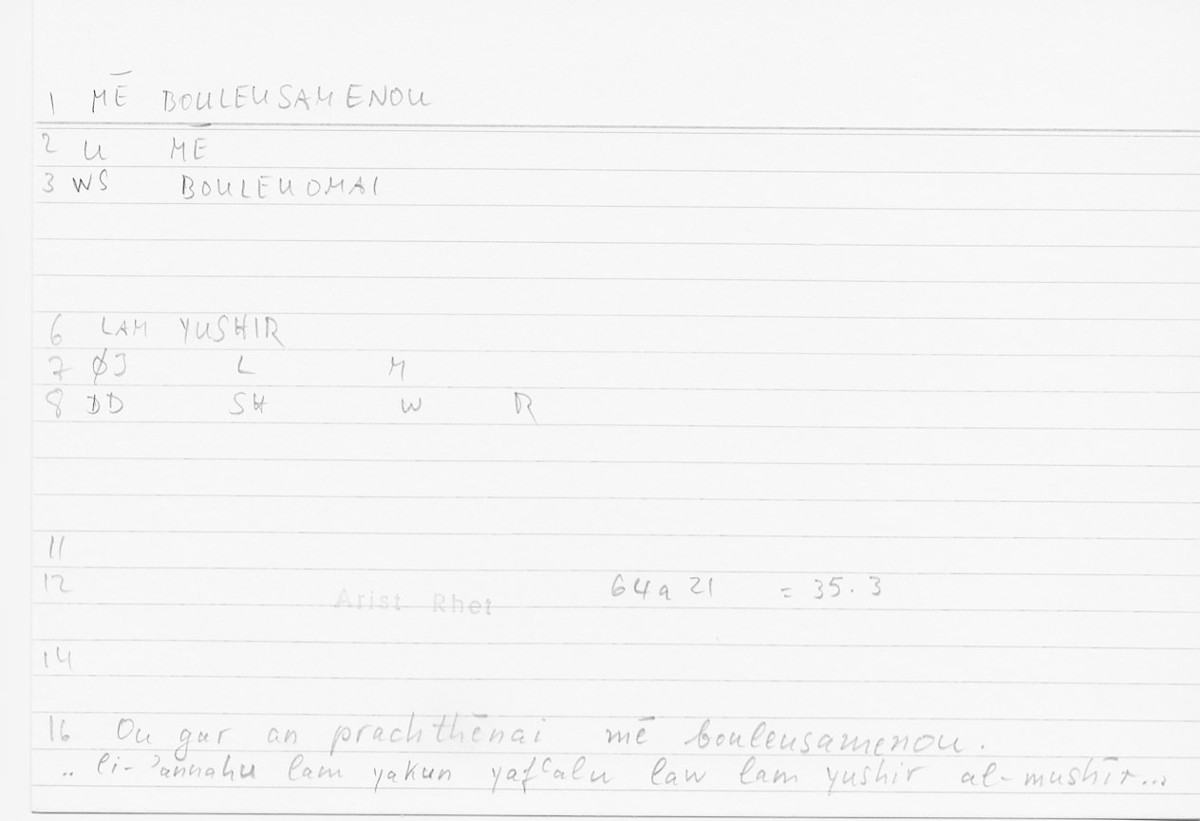 1 MĒ BOULEUSAMENOU
2 U MĒ
3 WS BOULEUOMAI
6 LAM YUSHIR
7 ØJ L M
8 DD SH W R
11
12 64a 21 = 35.3
Arist Rhet
14
16 Ou gar an prachthēnai mē bouleusamenou.
.. li-ʾannahu lam yakun yafʿalu law lam yushir al-mushīr...